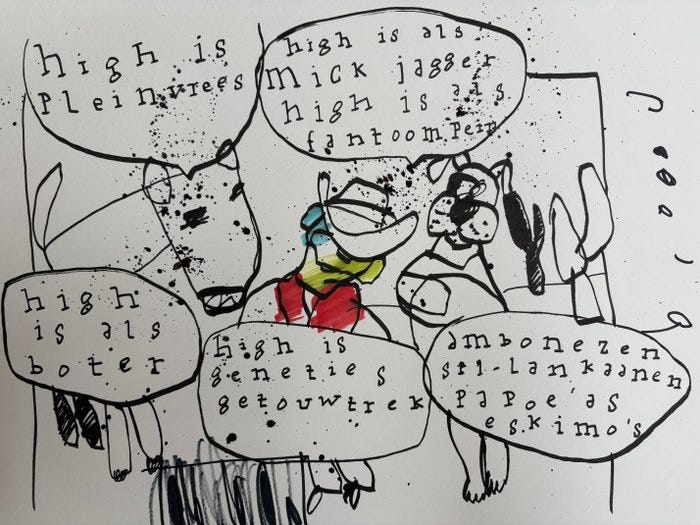 high is
pleinvrees
high is als
mick jagger
high is als
fantoompein
high
is als
boter
high is
geneties
getouwtrek
ambonezen
sri-lankaanen
papoe'as
eskimo's